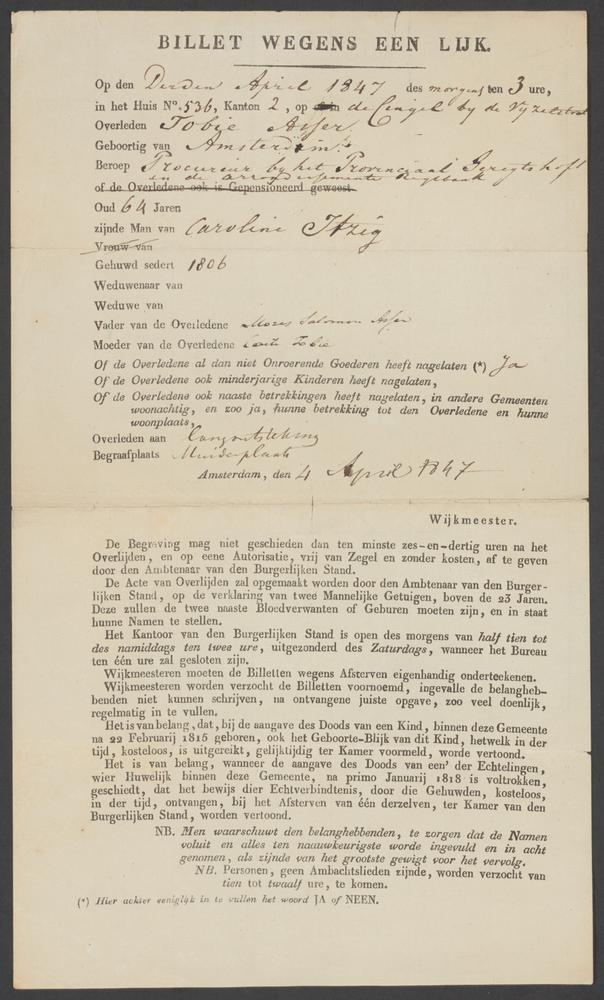 BILLET WEGENS EEN LIJK.
Op den Derden April 1847 des morgens ten 3 ure,
in het Huis No. 536, Kanton 2, op de Cingel by de Vyzelstraat
Overleden Tobie Asser
Geboortig van Amsterdam
Beroep Procureur by het Provinciaal Geregtshof
en de arrondissements Regtbank
of de Overledene ook is Gepensioneerd geweest
Oud 64 Jaren
zijnde Man van Caroline Itzig
Vrouw van
Gehuwd sedert 1806
Weduwenaar van
Weduwe van
Vader van de Overledene Mozes Salomon Asser
Moeder van de Overledene Tobie
Of de Overledene al dan niet Onroerende Goederen heeft nagelaten (*) Ja
Of de Overledene ook minderjarige Kinderen heeft nagelaten,
Of de Overledene ook naaste betrekkingen heeft nagelaten, in andere Gemeenten
woonachtig, en zoo ja, hunne betrekking tot den Overledene en hunne
woonplaats,
Overleden aan longontsteking
Begraafplaats Muiderplaats
Amsterdam, den 4 April 1847
Wijkmeester.
De Begraving mag niet geschieden dan ten minste zes-en-dertig uren na het
Overlijden, en op eene Autorisatie, vrij van Zegel en zonder kosten, af te geven
door den Ambtenaar van den Burgerlijken Stand.
De Acte van Overlijden zal opgemaakt worden door den Ambtenaar van den Burger-
lijken Stand, op de verklaring van twee Mannelijke Getuigen, boven de 23 Jaren.
Deze zullen de twee naaste Bloedverwanten of Geburen moeten zijn, en in staat
hunne Namen te stellen.
Het Kantoor van den Burgerlijken Stand is open des morgens van half tien tot
des namiddags ten twee ure, uitgezonderd des Zaturdags, wanneer het Bureau
ten één ure zal gesloten zijn.
Wijkmeesteren moeten de Billetten wegens Afsterven eigenhandig onderteekenen.
Wijkmeesteren worden verzocht de Billetten voornoemd, ingevalle de belangheb-
benden niet kunnen schrijven, na ontvangene juiste opgave, zoo veel doenlijk,
regelmatig in te vullen.
Het is van belang, dat, bij de aangave des Doods van een Kind, binnen deze Gemeente
na 22 Februarij 1815 geboren, ook het Geboorte-Blijk van dit Kind, hetwelk in der
tijd, kosteloos, is uitgereikt, gelijktijdig ter Kamer voormeld, worde vertoond.
Het is van belang, wanneer de aangave des Doods van een' der Echtelingen,
wier Huwelijk binnen deze Gemeente, na primo Januarij 1818 is voltrokken,
geschiedt, dat het bewijs dier Echtverbindtenis, door die Gehuwden, kosteloos,
in der tijd, ontvangen, bij het Afsterven van één derzelven, ter Kamer van den
Burgerlijken Stand, worden vertoond.
NB. Men waarschuwt den belanghebbenden, te zorgen dat de Namen
voluit en alles ten naauwkeurigste worde ingevuld en in acht
genomen, als zijnde van het grootste gewigt voor het vervolg.
NB. Personen, geen Ambachtslieden zijnde, worden verzocht van
tien tot twaalf ure, te komen.
(*) Hier achter eeniglijk in te vullen het woord JA of NEEN.